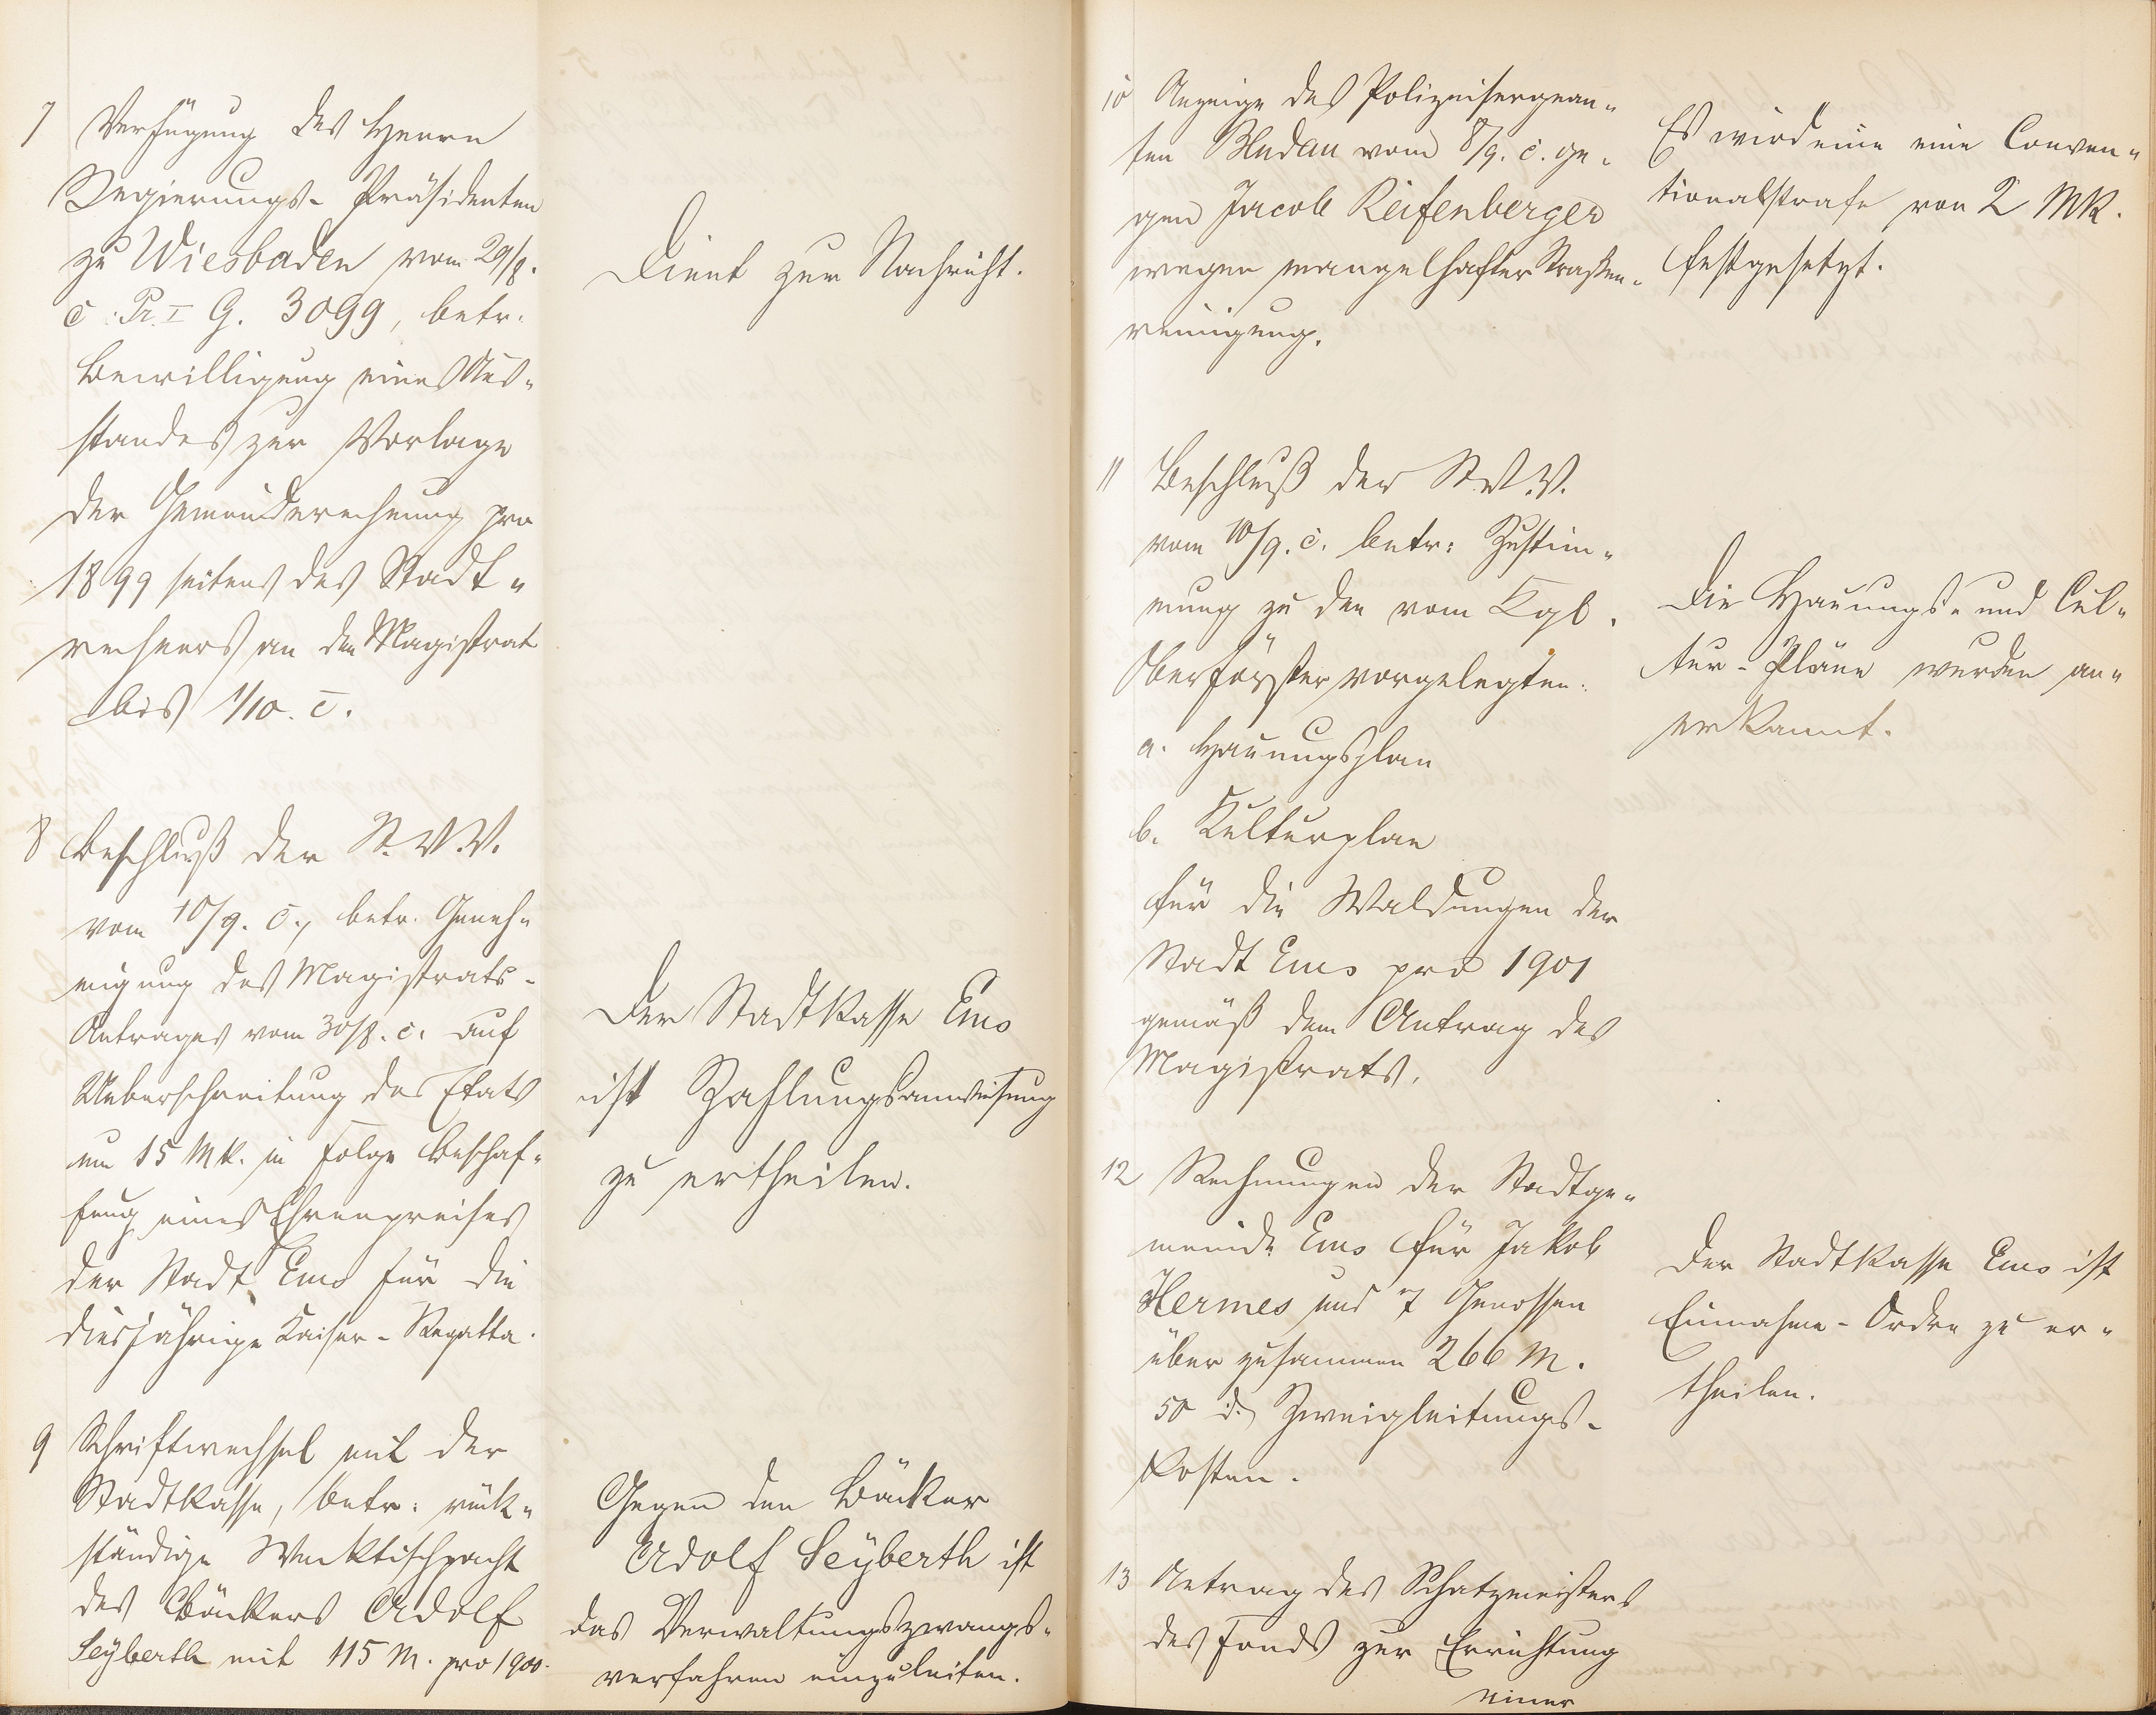 7 Verfügung des Herrn
Regierungs-Präsidenten
zu Wiesbaden vom 29/8.
c. Pr. I G. 3099, betr.
Bewilligung eines Aus-
standes zur Vorlage
der Gemeinderechnung pro
1899 seitens des Stadt-
rechners an den Magistrat
bis 1/10. c.
Dient zur Nachricht.
8 Beschluß der St. V. V.
vom 10/9. c., betr. Geneh-
migung des Magistrats-
Antrages vom 30/8. c. auf
Ueberschreitung des Etats
um 15 Mk. in Folge Beschaf-
fung eines Ehrenpreises
der Stadt Ems für die
diesjährige Kaiser-Regatta.
Der Stadtkasse Ems
ist Zahlungsanweisung
zu ertheilen.
9 Schriftwechsel mit der
Stadtkasse, betr. rück-
ständige
des Bäckers Adolf
Seyberth mit 115 M. pro 1900.
Gegen den Bäcker
Adolf Seyberth ist
das Verwaltungszwangs-
verfahren einzuleiten.
10 Anzeige des Polizeisergean-
ten Bludau vom 8/9. c. ge-
gen Jacob Reifenberger
wegen mangelhafter Straßen-
reinigung.
Es wird eine eine Conven-
tionalstrafe von 2 Mk.
festgesetzt.
11 Beschluß der St. V. V.
vom 10/9. c. betr. Zustim-
mung zu den vom Kgl.
Oberförster vorgelegten:
a. Hauungsplan
b. Kulturplan
für die Waldungen der
Stadt Ems pro 1901
gemäß dem Antrag des
Magistrats.
Die Hauungs- und Cul-
tur-Pläne wurden an-
erkannt.
12 Rechnungen der Stadtge-
meinde Ems für Jakob
Hermes und 7 Genossen
über zusammen 266 M.
50 d. Zweigleitungs-
kosten.
Der Stadtkasse Ems ist
Einnahme-Ordre zu er-
theilen.
13 Antrag des Schatzmeisters
des Fonds zur Errichtung
einer